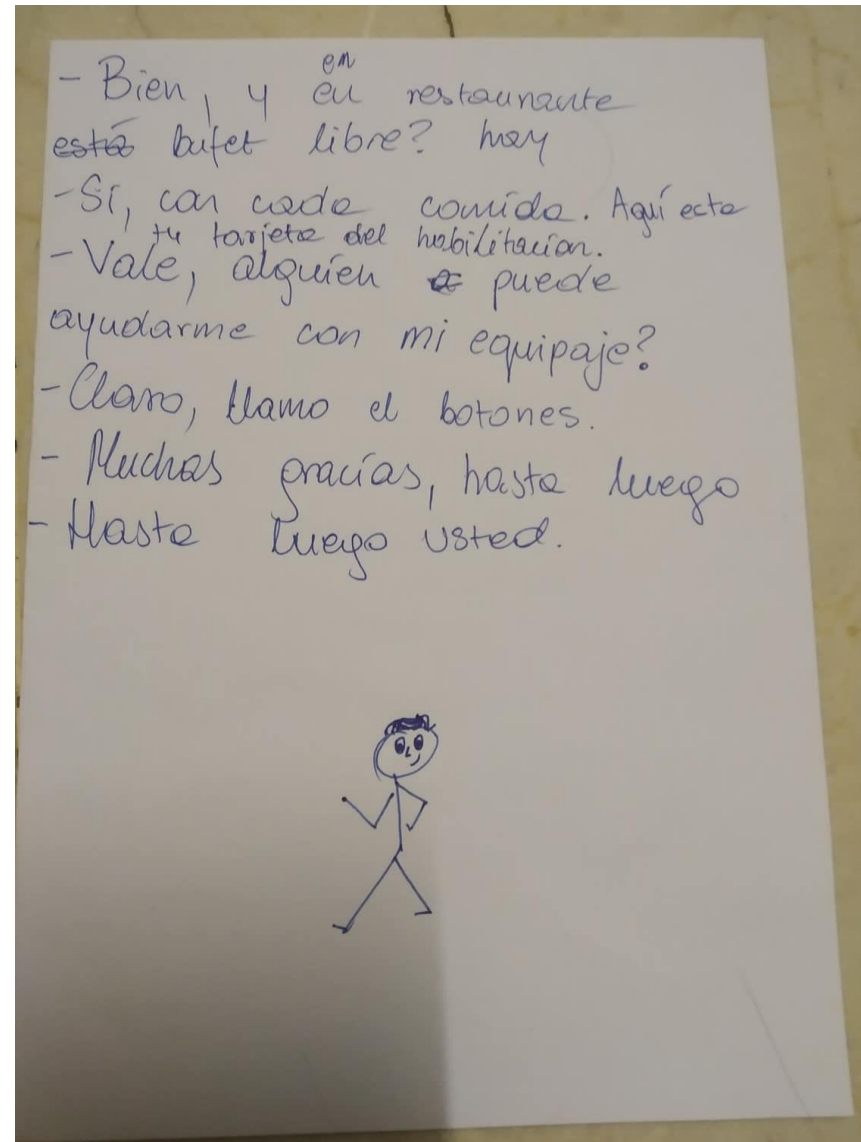 - Bien, y en en restaurante
está bufet libre? hay
- Sí, con cada comida. Aquí ecta
tu tarjeta del habilitacion.
- Vale, alguien puede
ayudarme con mi equipaje?
- Claro, llamo el botones.
- Muchas gracías, hasta luego
- Hasta luego usted.